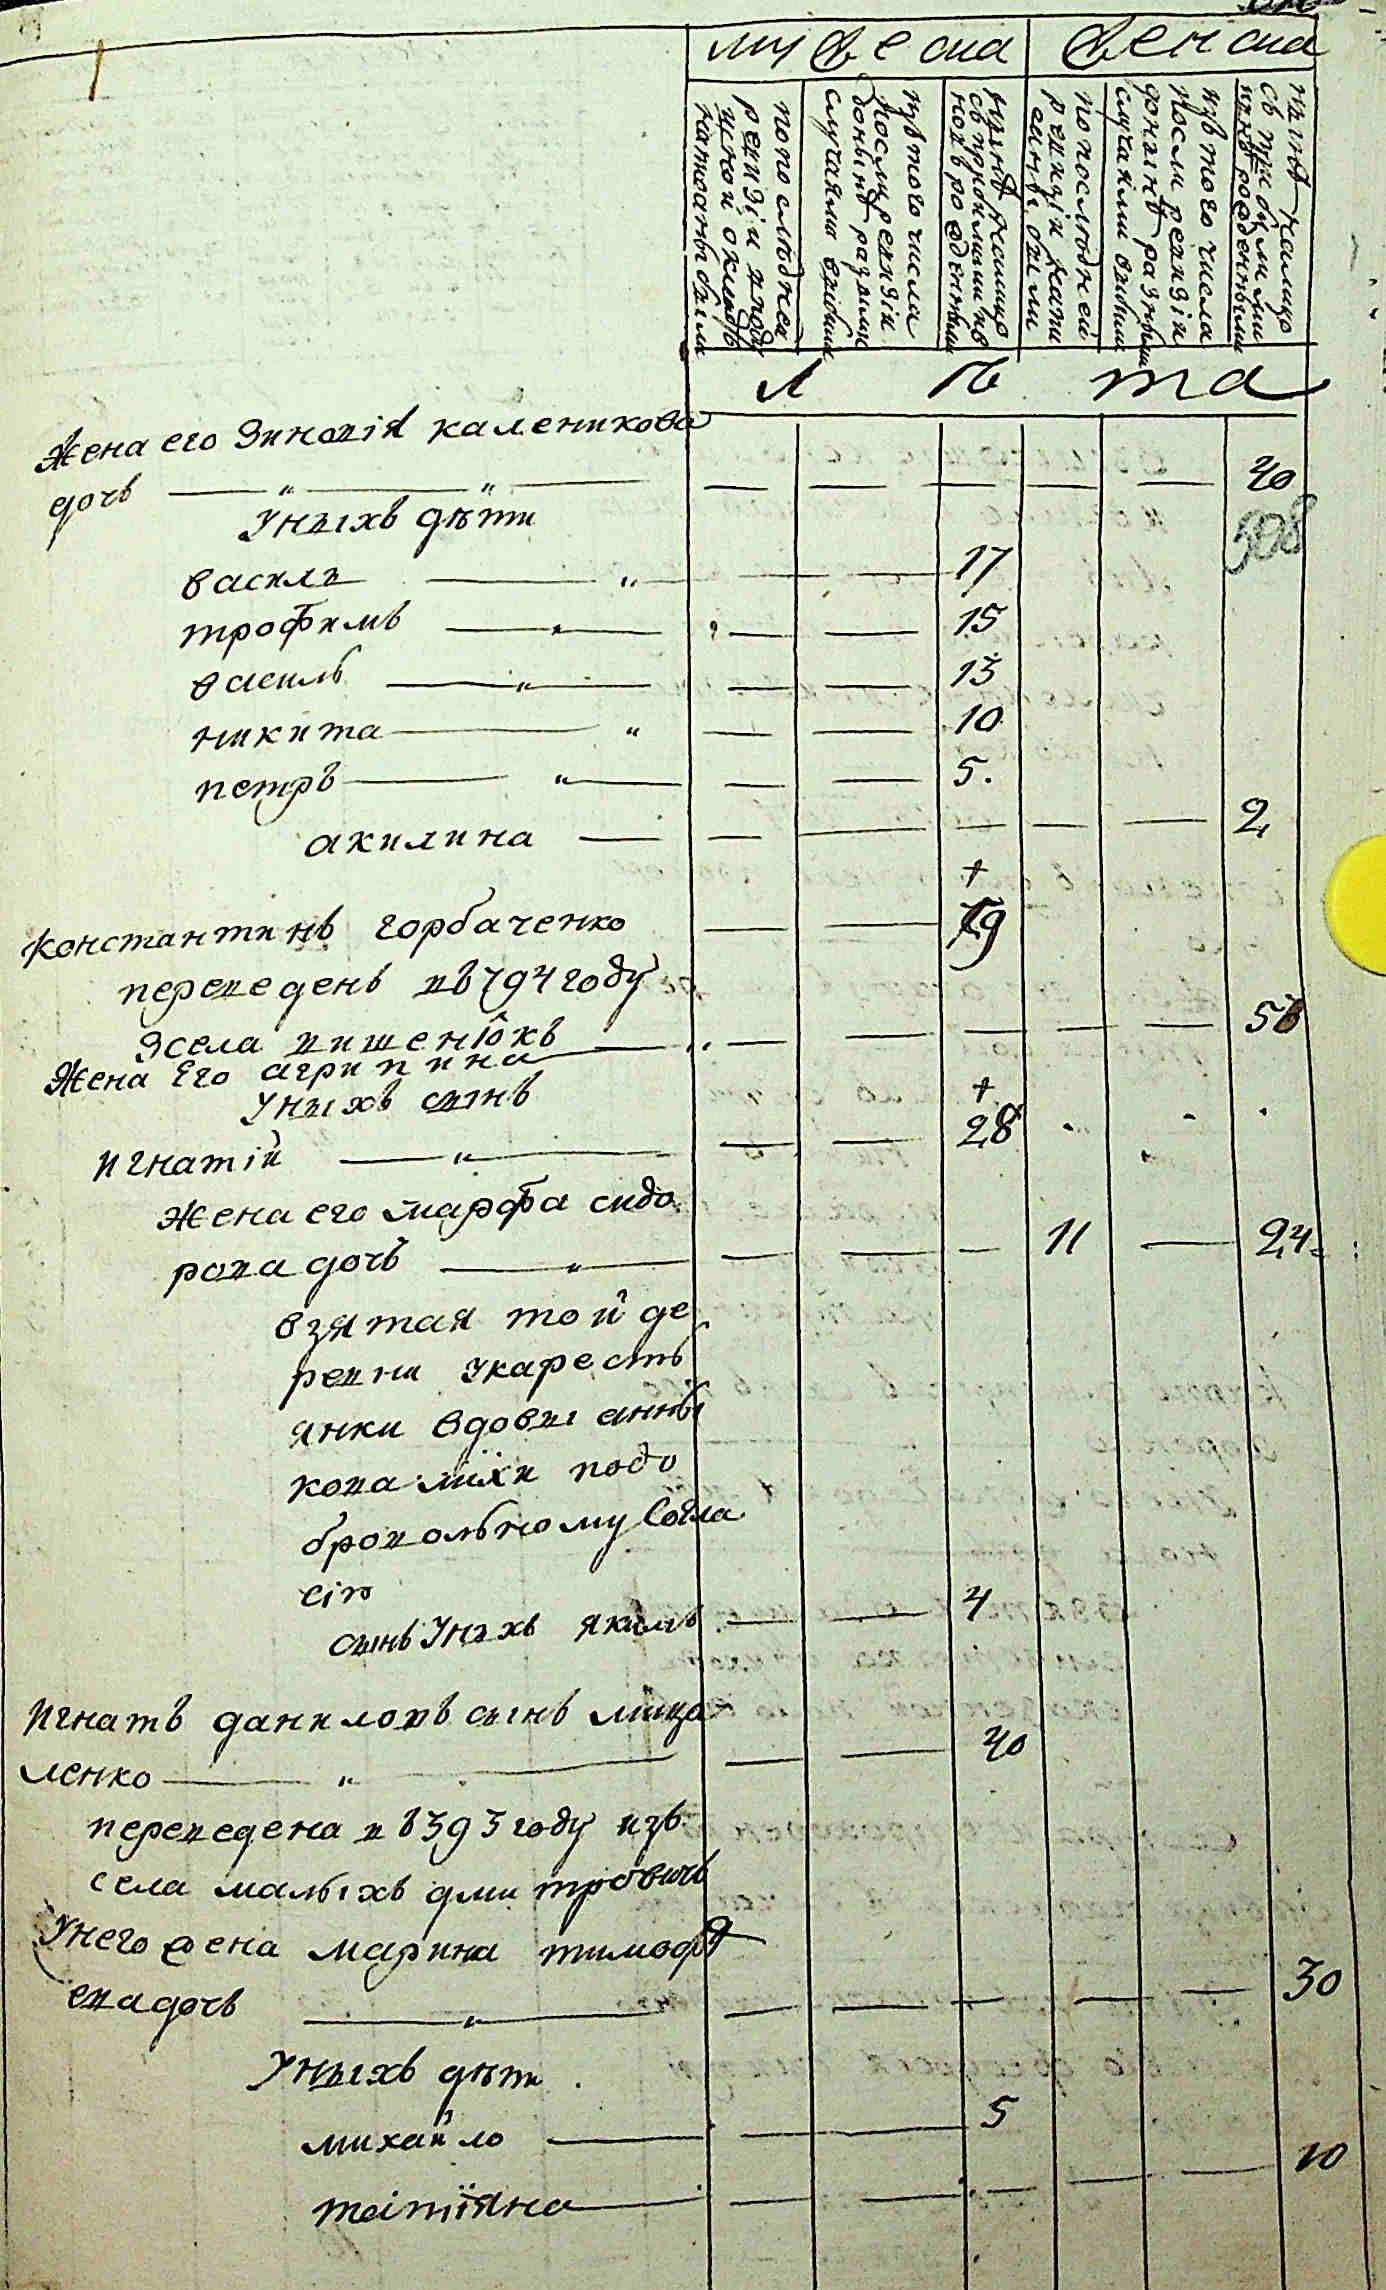 мужеска женска
по последней ревизіи и подушной окладъ написаны были
изъ того числа после ревизіи до нынѣ разными случаями выбыли
нынѣ налицо съ прибылыми и вновь рожденными
по последней ревизіи написаны были
изъ того числа после ревизіи до нынѣ разными случаями выбыли
нынѣ налицо съ прибылыми и вновь рожденными
лѣта
Жена его Зиновія каленикова
дочь — " — " — — — — — — 40
508
Уныхъ дѣти
василь — " — — 17
трофимъ — — — 15
василь — " — — 13
никита — " — — 10
петръ — " — — 5.
акилина — — — — — — 2
+
Константинъ горбаченко — — 79
переведенъ въ 794 году
Зсела вишенюкъ
Жена Его агрипина — — — — — — 56
Уныхъ сынъ +
игнатій — " — — — 28
жена его марфа сидо
рова дочь — " — — — — 11 — 24
взятая той де
ревни укаресть
янки вдовы анны
ковалихи подо
бровольному Согла
сію
сынъ Уныхъ якимъ — — 4
игнатъ даниловъ сынъ мица
ленко — " — — — 40
переведена въ 393 году изъ
села малыхъ дмитровичъ
Унего жена марина тимофѣ
ева дочь — " — — — — — — 30
Уныхъ дѣти
михайло — — — 5
татіяна — — — — — — 10